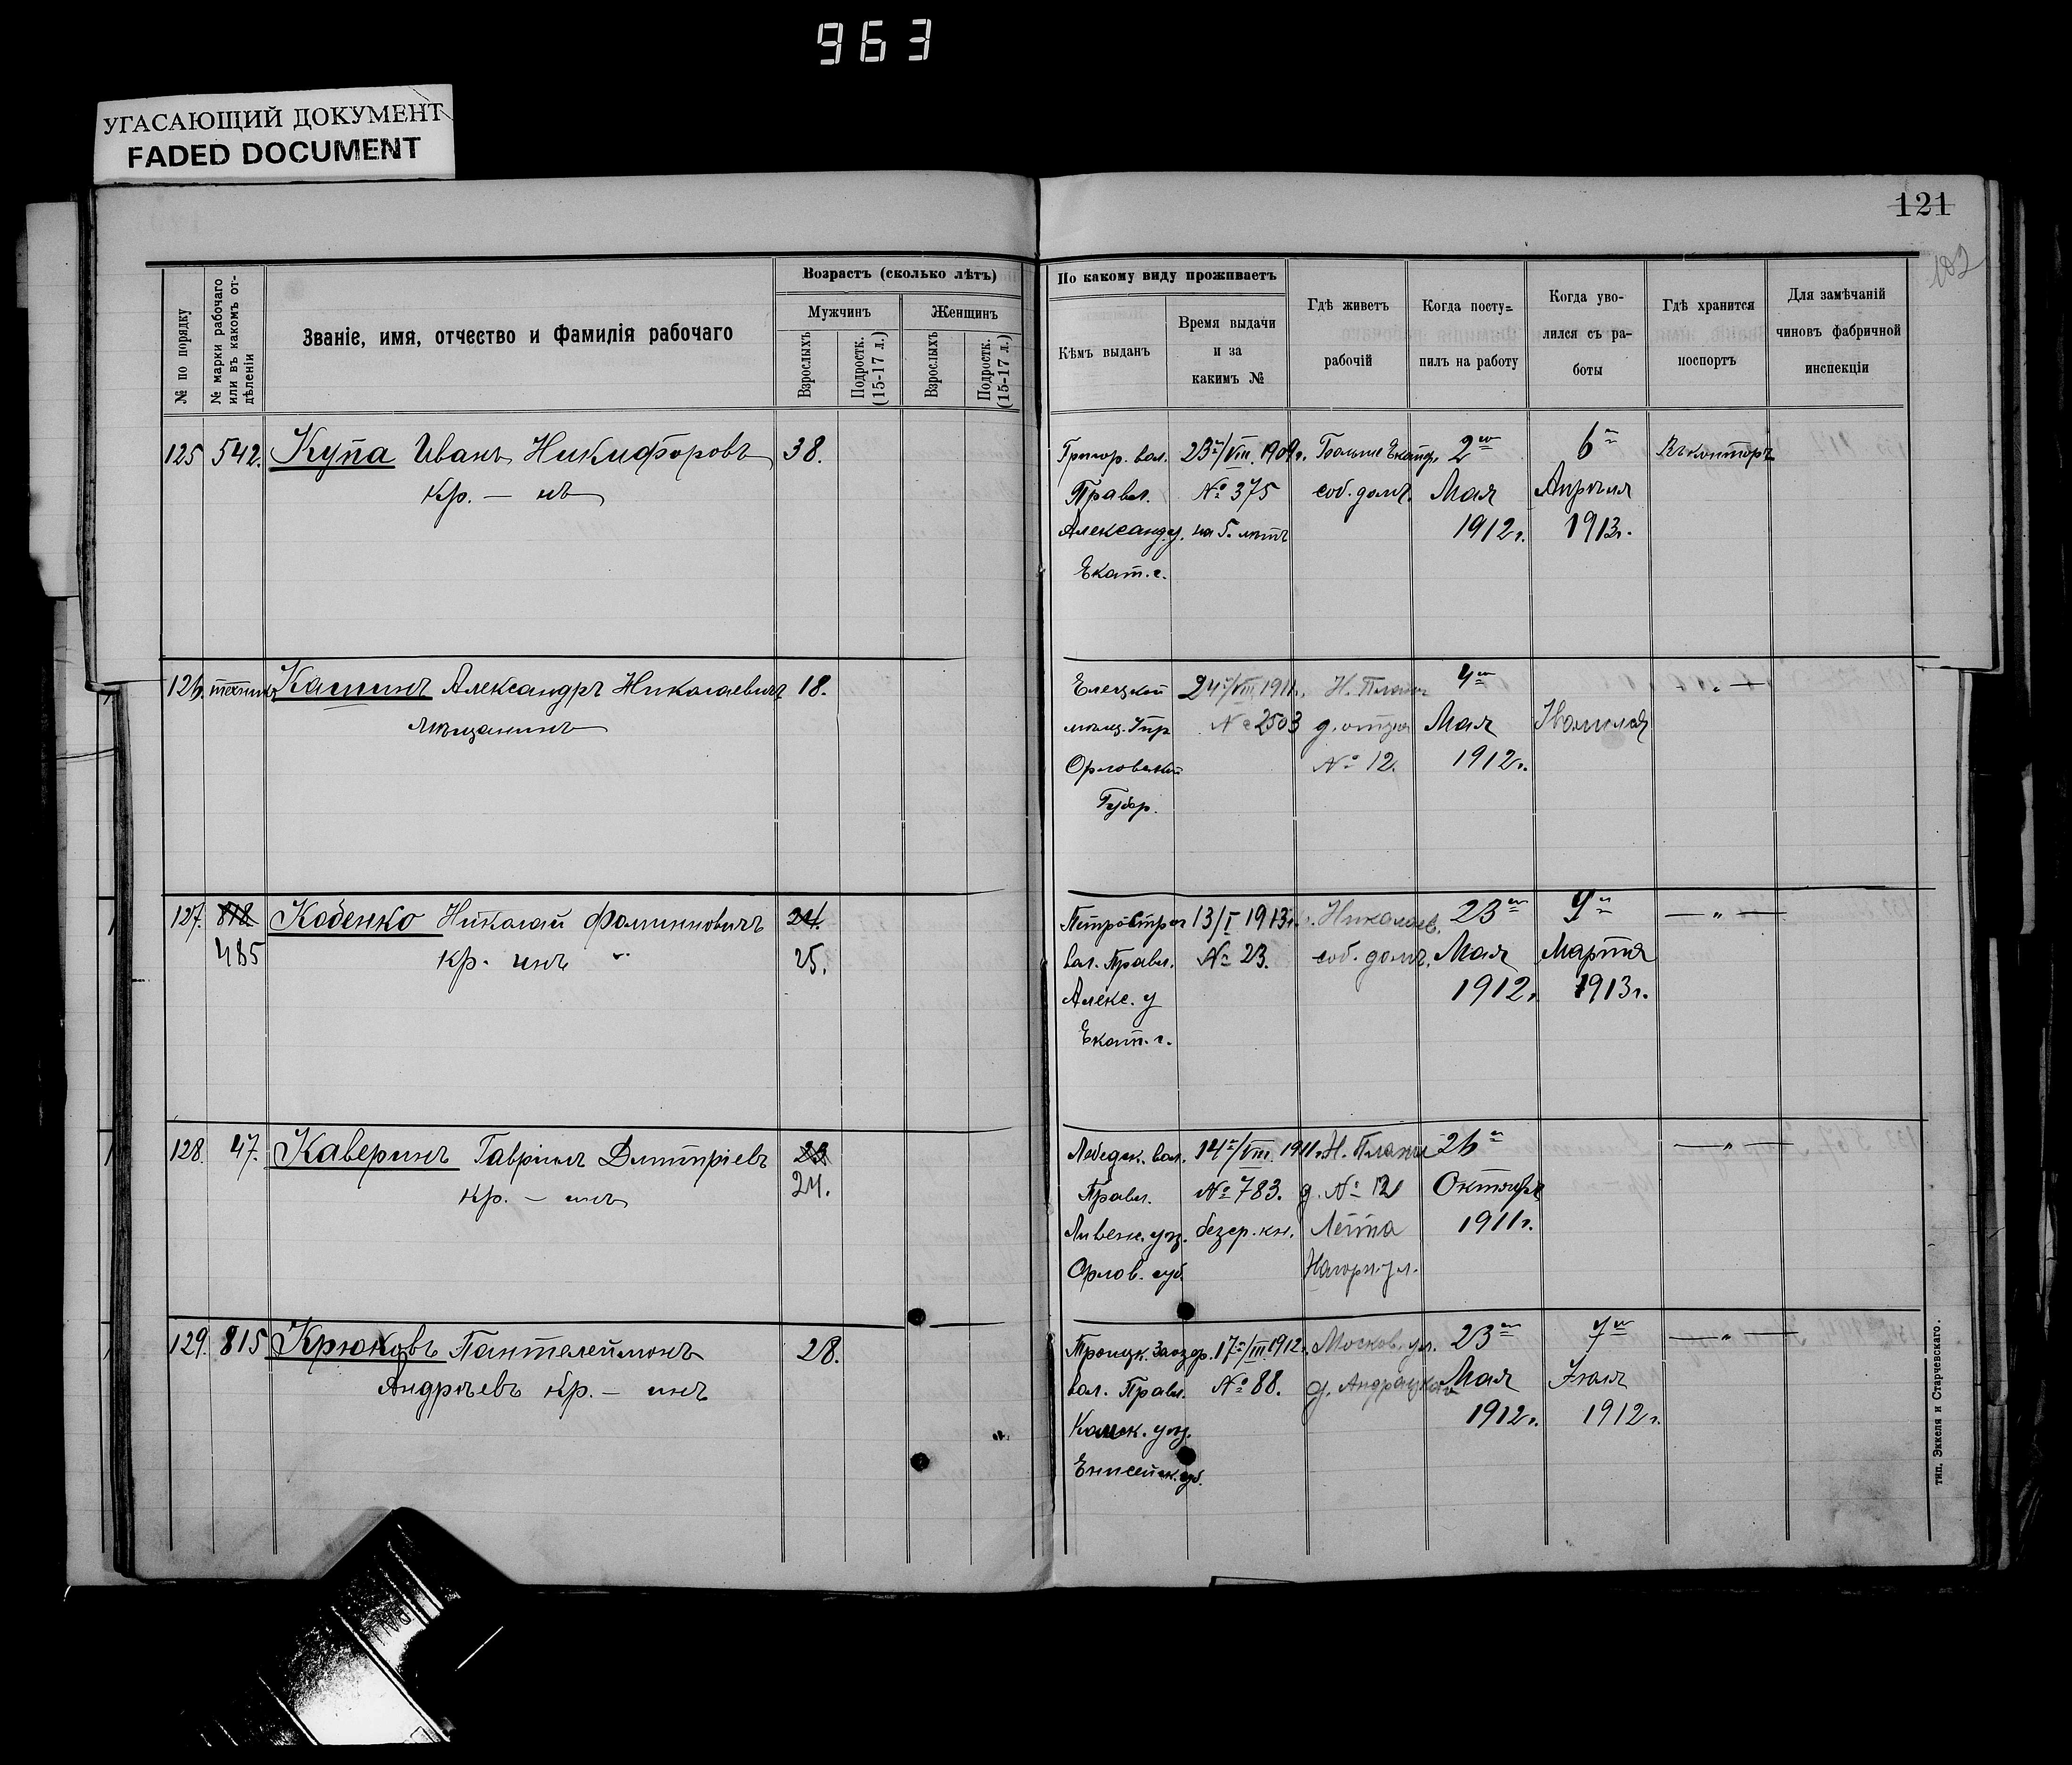 963
УГАСАЮЩИЙ ДОКУМЕНТ
FADED DOCUMENT
121
102
№ по порядку
№ марки рабочаго или въ какомъ отдѣленіи
Званіе, имя, отчество и фамилія рабочаго
Возрастъ (сколько лѣтъ)
Мужчинъ
Женщинъ
Взрослыхъ
Подростк. (15-17 л.)
Взрослыхъ
Подростк. (15-17 л.)
По какому виду проживаетъ
Кѣмъ выданъ
Время выдачи и за какимъ №
Гдѣ живетъ рабочій
Когда посту=пилъ на работу
Когда уво-лился съ ра-боты
Гдѣ хранится поспортъ
Для замѣчаній чиновъ фабричной инспекціи
125 542. Купа Иванъ Никифоровъ 38.
Кр. — нъ
Григор. вол. 23/VIII 1909г. 2го 6го Въ конторѣ
Правл. № 375 соб. домъ. Мая Апрѣля
Александ. у. на 5 лѣтъ 1912г. 1913г.
Екат. г.
126. Кашинъ Александръ Николаевичъ 18.
Мѣщанинъ
Елецкой 24/VIII 1911г. Н. Планъ 4го — „ —
мѣщ. Упр № 2503 Мая
Орловской № 12. 1912г.
Губер.
127. 818 Кобенко Николай 24.
485 Кр. инъ 25.
13/I 1913г. Николаев. 23го 9го — „ —
вол. Правл. № 23. соб. домъ. Мая Марта
Алекс. у 1912г. 1913г.
Екат. г.
128. 47. Каверинъ Гавріилъ Дмитріевъ 23
Кр. — инъ 24.
Лебедк. вол. 14/VIII 1911г. Н. Планъ 26го — „ —
Правл. № 783. д. № 12 Октября
Ливенс. уѣз. безср. кн. 1911г.
Орлов. губ. Нагорн. ул.
129. 815 Крюковъ Пантелеймонъ 28.
Андреевъ кр. — инъ
Троицк. Заозер. 17/III 1912г. Москов. ул. 23го 7го — „ —
вол. Правл. № 88. Мая Іюля
Канск. уѣз. 1912г. 1912г.
Енисейск. губ.
тип. Эккеля и Старчевскаго.